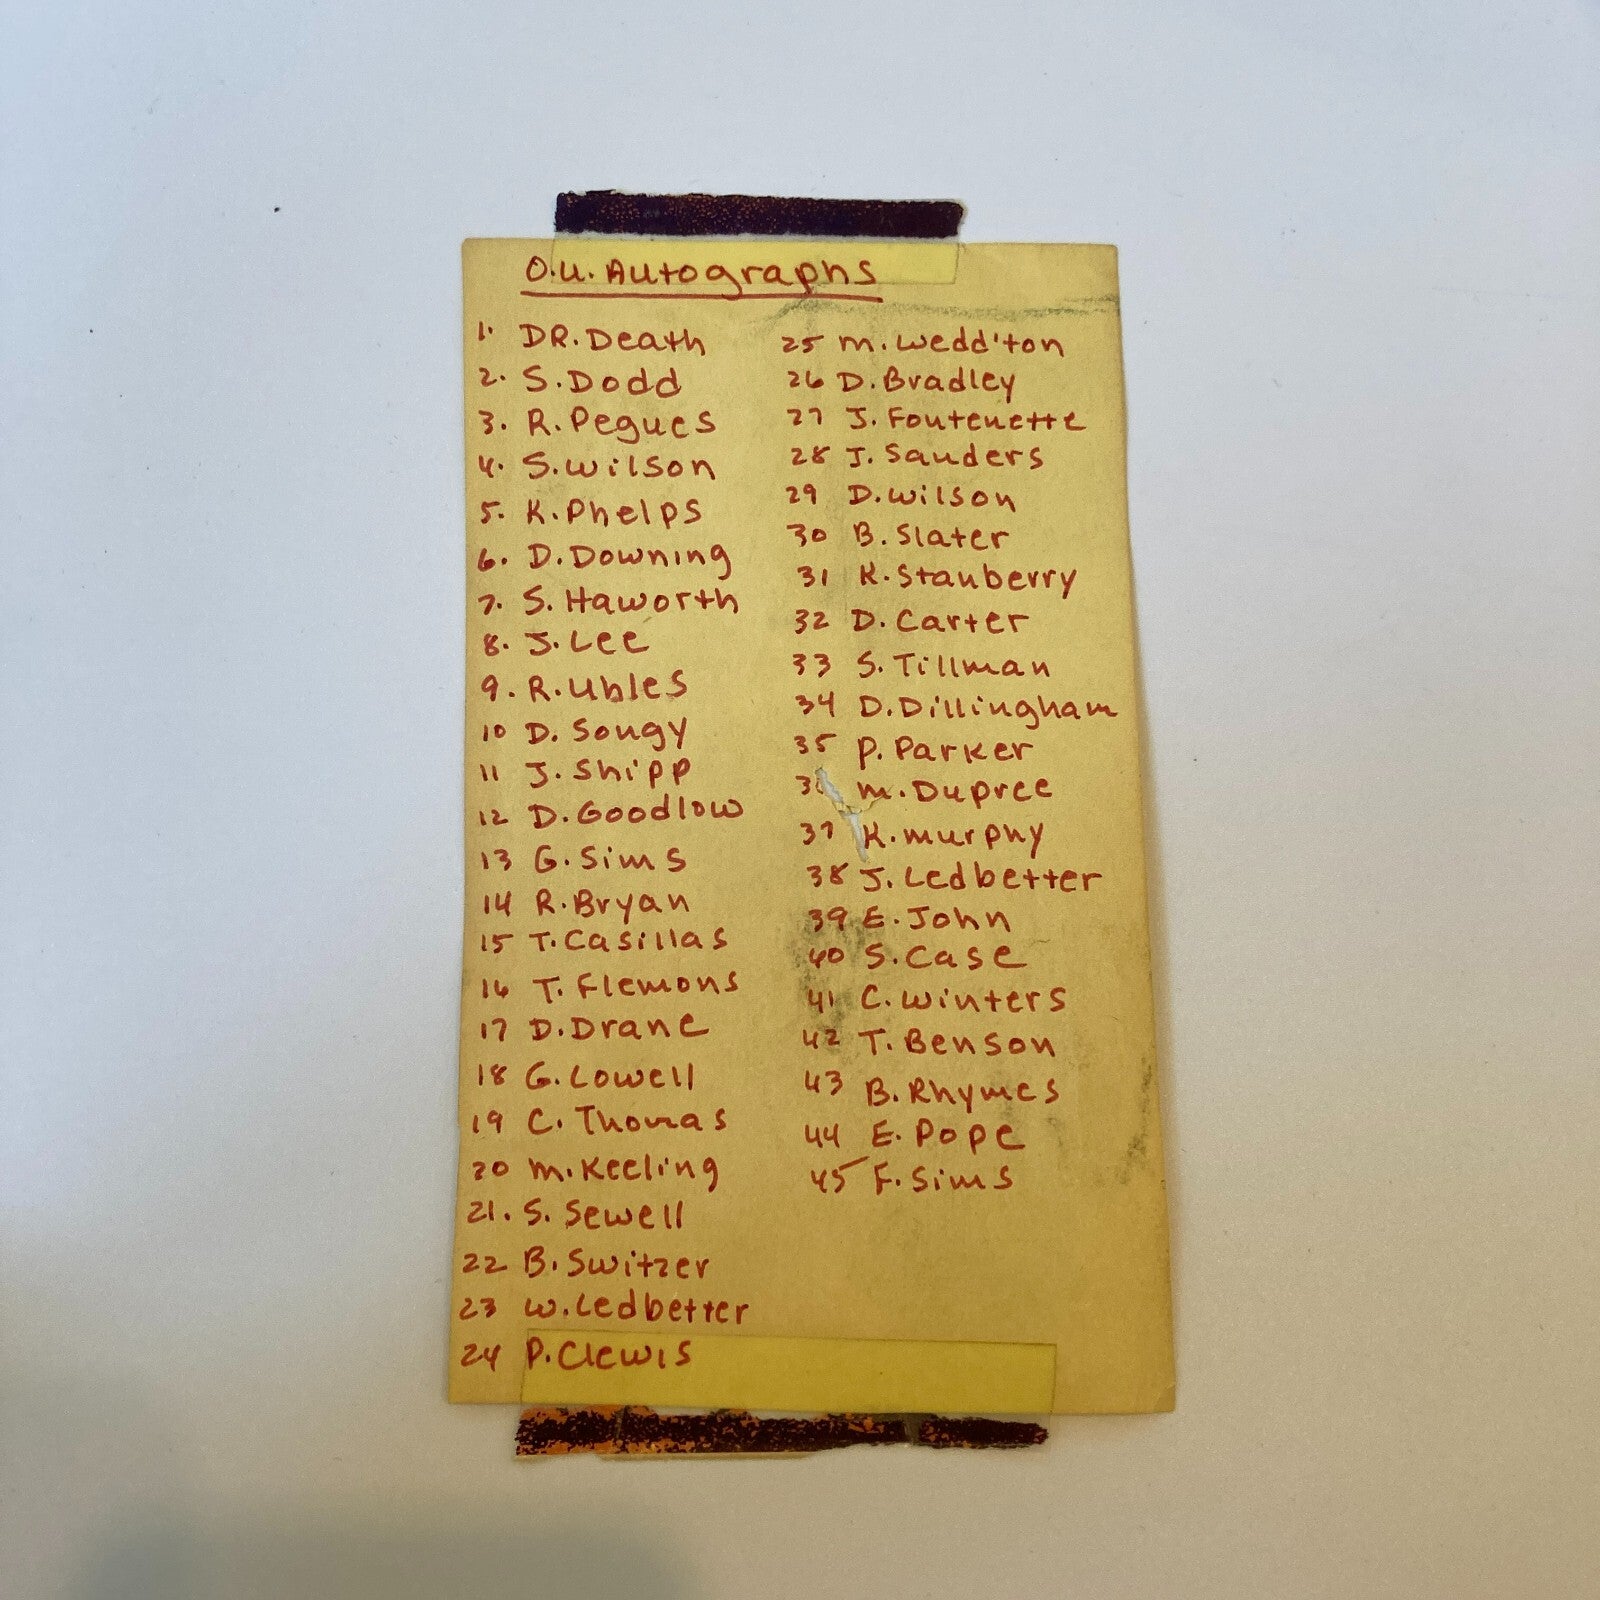 O.U. Autographs
1. DR. Death
2. S. Dodd
3. R. Pegues
4. S. Wilson
5. K. Phelps
6. D. Downing
7. S. Haworth
8. J. Lee
9. R. Ubles
10 D. Songy
11 J. Shipp
12 D. Goodlow
13 G. Sims
14 R. Bryan
15 T. Casillas
16 T. Flemons
17 D. Drane
18 G. Lowell
19 C. Thomas
20 M. Keeling
21. S. Sewell
22 B. Switzer
23 W. Ledbetter
24 P. Clewis
25 M. Wedd'ton
26 D. Bradley
27 J. Fontenette
28 J. Sanders
29 D. Wilson
30 B. Slater
31 K. Stanberry
32 D. Carter
33 S. Tillman
34 D. Dillingham
35 P. Parker
36 M. Dupree
37 K. Murphy
38 J. Ledbetter
39 E. John
40 S. Case
41 C. Winters
42 T. Benson
43 B. Rhymes
44 E. Pope
45 F. Sims